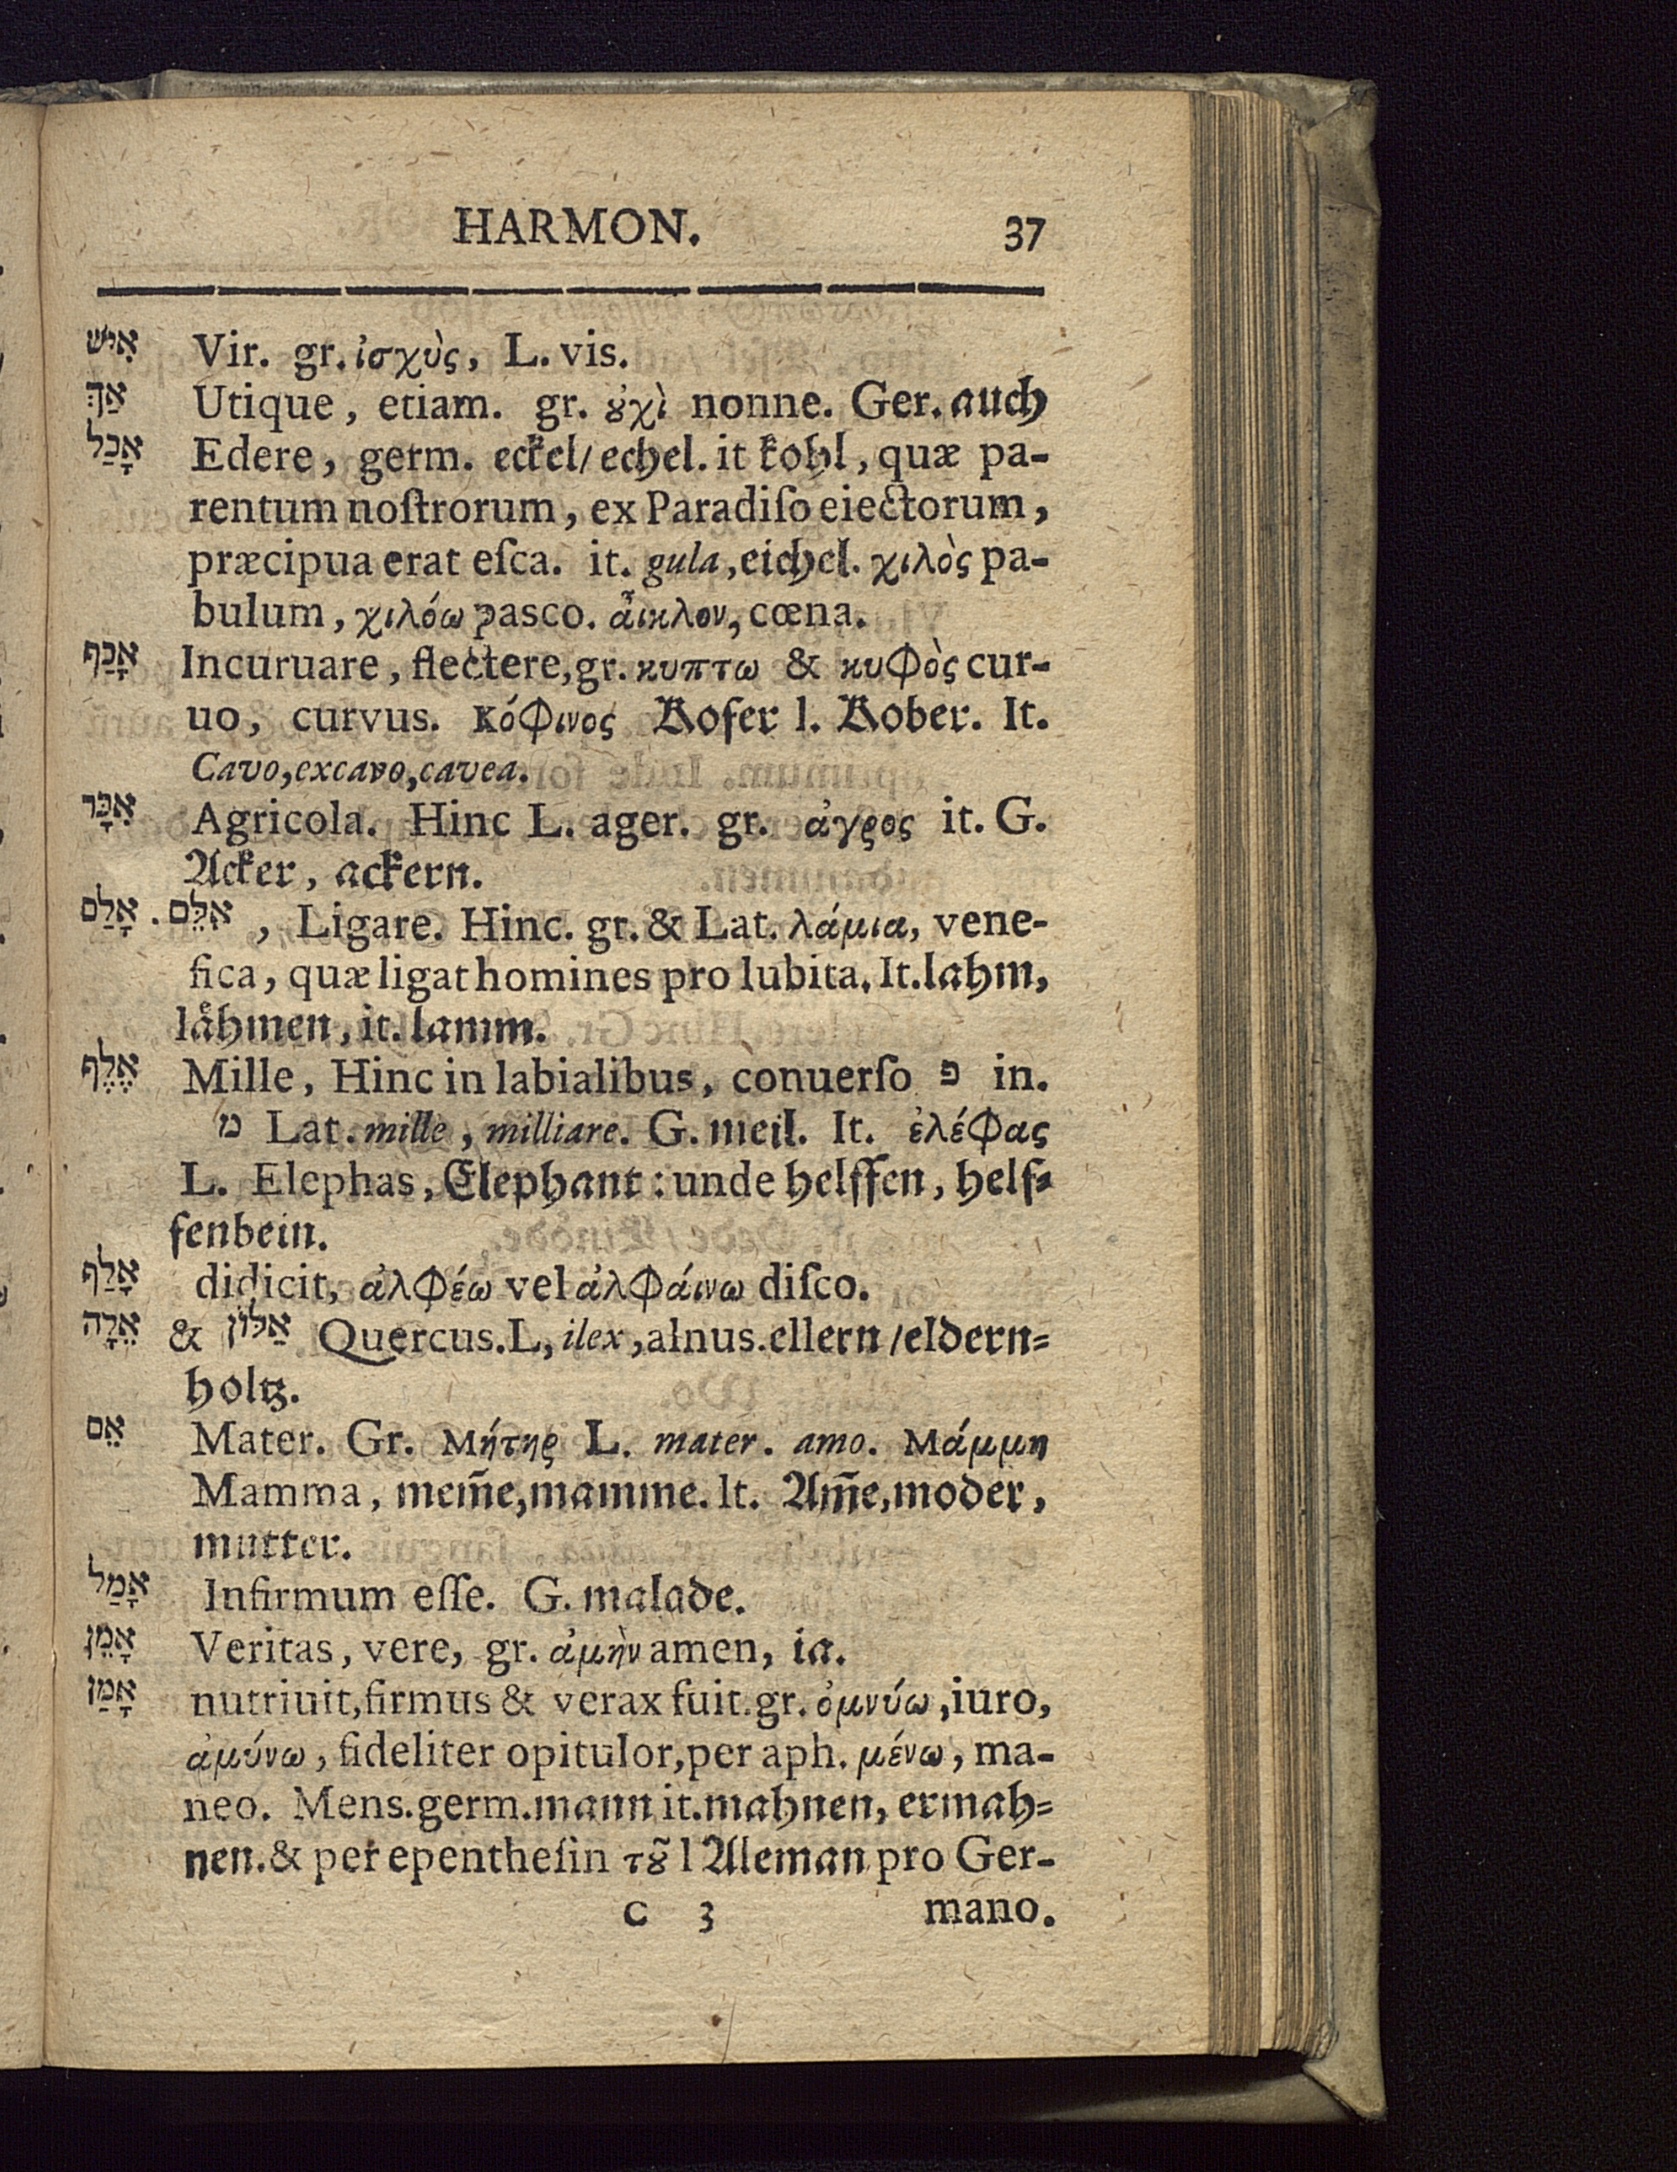 HARMON. 37
אִישׁ Vir. gr. ἰσχὺς, L. vis.
אַךְ Utique, etiam. gr. ȣ̓χὶ nonne. Ger. auch
אָכַל Edere, germ. eckel/ echel. it kohl, quæ pa-
rentum noſtrorum, ex Paradiſo eiectorum,
præcipua erat eſca. it. gula, eichel. χιλὸς pa-
bulum, χιλόω pasco. ἆικλον, cœna.
אָכַף Incuruare, flectere, gr. κυπτω & κυφὸς cur-
uo, curvus. Κόφινος Kofer l. Kober. It.
Cavo, excavo, cavea.
אִכָּר Agricola. Hinc L. ager. gr. ἀγρος it. G.
Acker, ackern.
אָלַם. אִלֵּם, Ligare. Hinc. gr. & Lat. λάμια, vene-
fica, quæ ligat homines pro lubita. It. lahm,
låhmen, it. lamm.
אֶלֶף Mille, Hinc in labialibus, conuerſo פ in.
מ Lat. mille, milliare. G. meil. It. ἐλέφας
L. Elephas, Elephant: unde helffen, helf-
fenbein.
אָלַף didicit, ἀλφέω vel ἀλφάινω diſco.
אֵלָה & אַלּוֹן Quercus. L, ilex, alnus. ellern/ eldern-
holtz.
אֵם Mater. Gr. Μήτηρ L. mater. amo. Μάμμη
Mamma, mem̃e, mamme. It. Am̃e, moder,
mutter.
אָמַל Infirmum eſſe. G. malade.
אָמֵן Veritas, vere, gr. ἀμὴν amen, ia.
אָמַן nutriuit, firmus & verax fuit. gr. ὀμνύω, iuro,
ἀμύνω, fideliter opitulor, per aph. μένω, ma-
neo. Mens. germ. mann it. mahnen, ermah-
nen. & per epentheſin τȣ͂ l Aleman pro Ger-
C 3 mano.